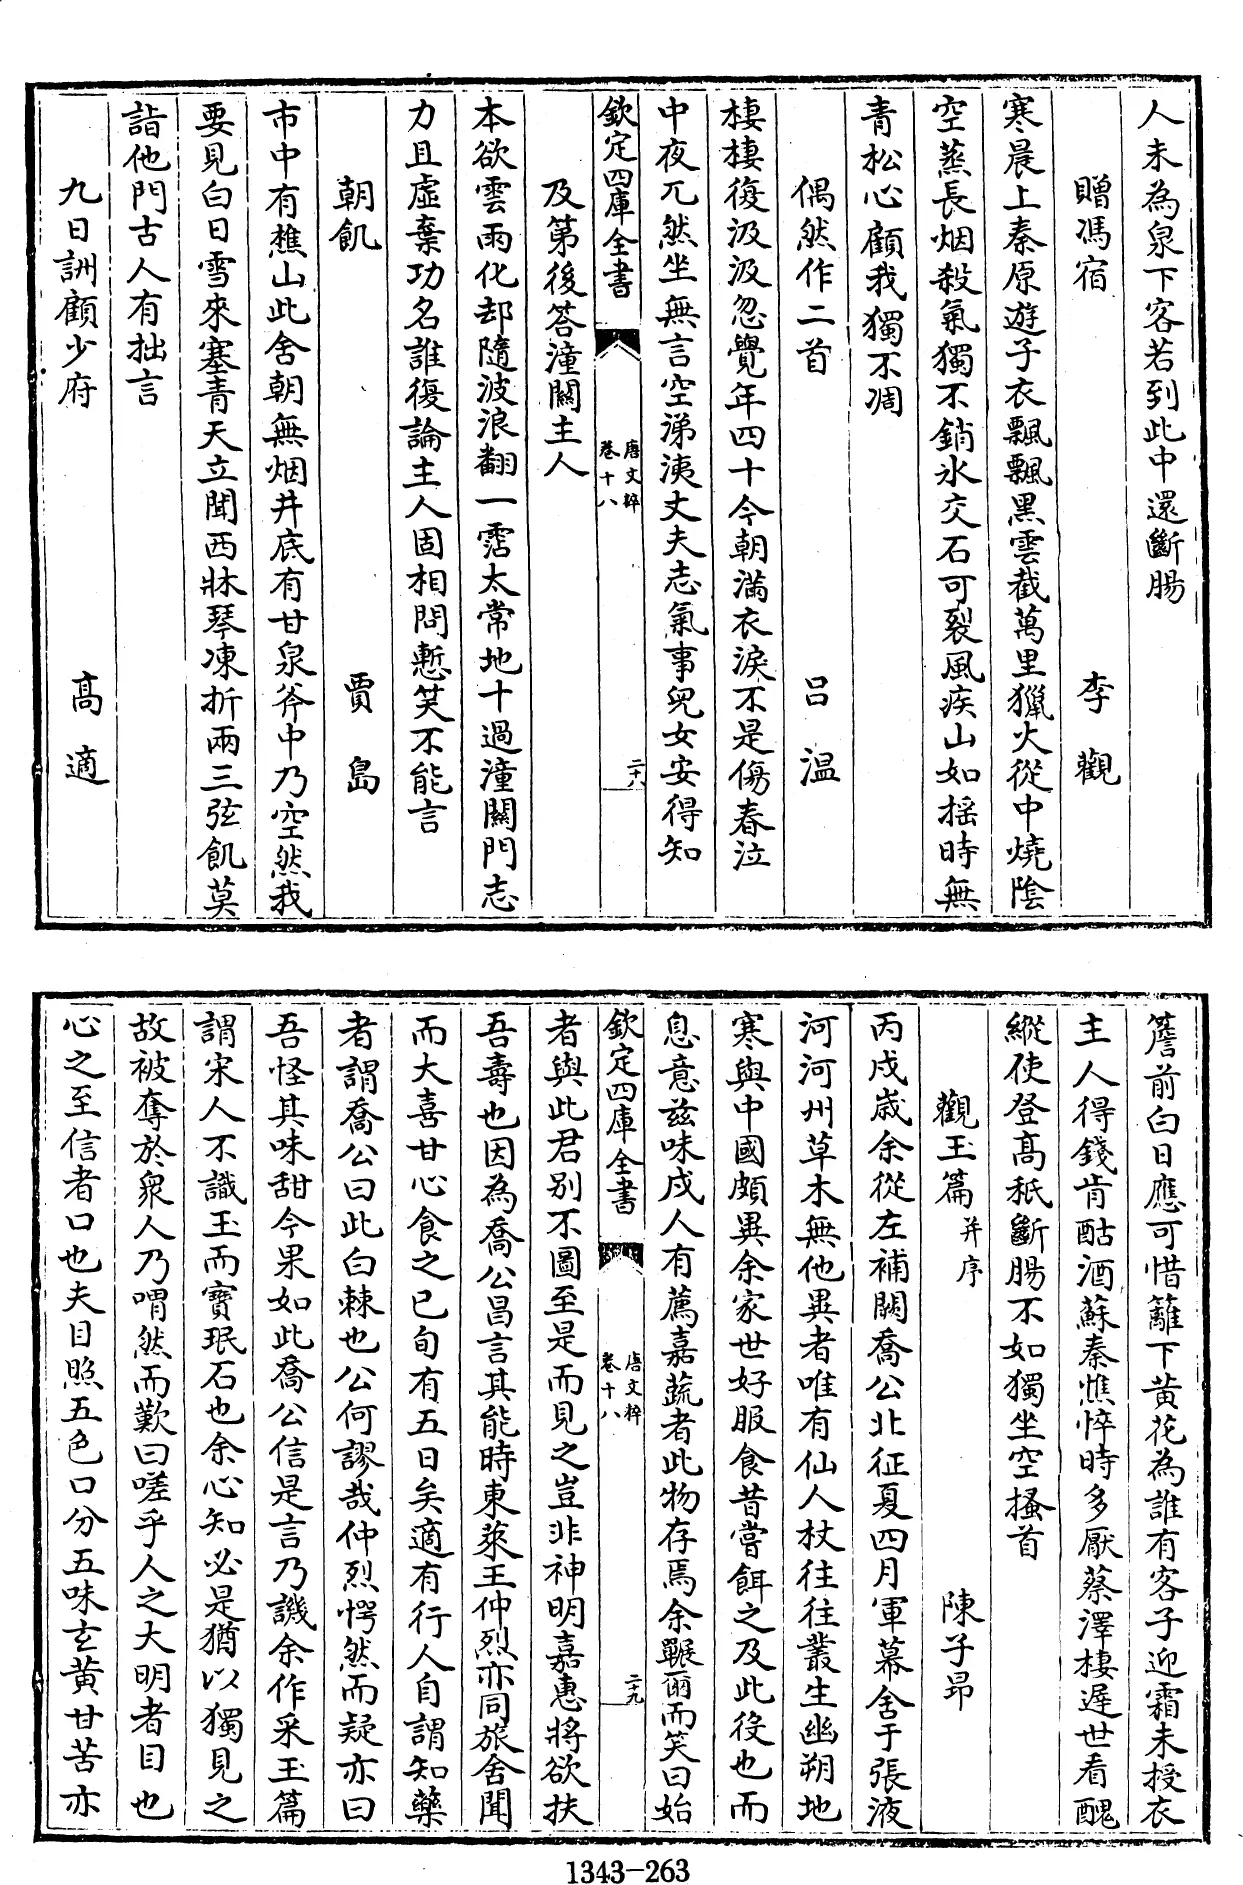 人未為泉下客若到此中還斷腸
贈馮宿 李觀
寒晨上秦原遊子衣飄飄黑雲截萬里獵火從中燒陰
空蒸長烟殺氣獨不銷冰交石可裂風疾山如搖時無
青松心顧我獨不凋
偶然作二首 呂温
棲棲復汲汲忽覺年四十今朝滿衣淚不是傷春泣
中夜兀然坐無言空涕洟丈夫志氣事兒女安得知
欽定四庫全書 唐文粹 卷十八 二十八
及第後答潼關主人
本欲雲雨化却隨波浪翻一霑太常地十過潼關門志
力且虛棄功名誰復論主人固相問慙笑不能言
朝飢 賈島
市中有樵山此舍朝無烟井底有甘泉釜中乃空然我
要見白日雪來塞青天立聞西牀琴凍折兩三弦飢莫
詣他門古人有拙言
九日詶顧少府 高適
簷前白日應可惜籬下黄花為誰有客子迎霜未授衣
主人得錢肯酤酒蘇秦憔悴時多厭蔡澤棲遲世看醜
縱使登高秪斷腸不如獨坐空搔首
觀玉篇 并序 陳子昂
丙戌歳余從左補闕喬公北征夏四月軍幕舍于張液
河河州草木無他異者唯有仙人杖往往叢生幽朔地
寒與中國頗異余家世好服食昔嘗餌之及此役也而
息意兹味戍人有薦嘉蔬者此物存焉余囅爾而笑曰始
者與此君别不圖至是而見之豈非神明嘉惠將欲扶
欽定四庫全書 唐文粹 卷十八 二十九
吾壽也因為喬公昌言其能時東萊王仲烈亦同旅舍聞
而大喜甘心食之已旬有五日矣適有行人自謂知藥
者謂喬公曰此白棘也公何謬哉仲烈愕然而疑亦曰
吾怪其味甜今果如此喬公信是言乃譏余作采玉篇
謂宋人不識玉而寶珉石也余心知必是猶以獨見之
故被奪於衆人乃喟然而歎曰嗟乎人之大明者目也
心之至信者口也夫目照五色口分五味玄黄甘苦亦
1343-263